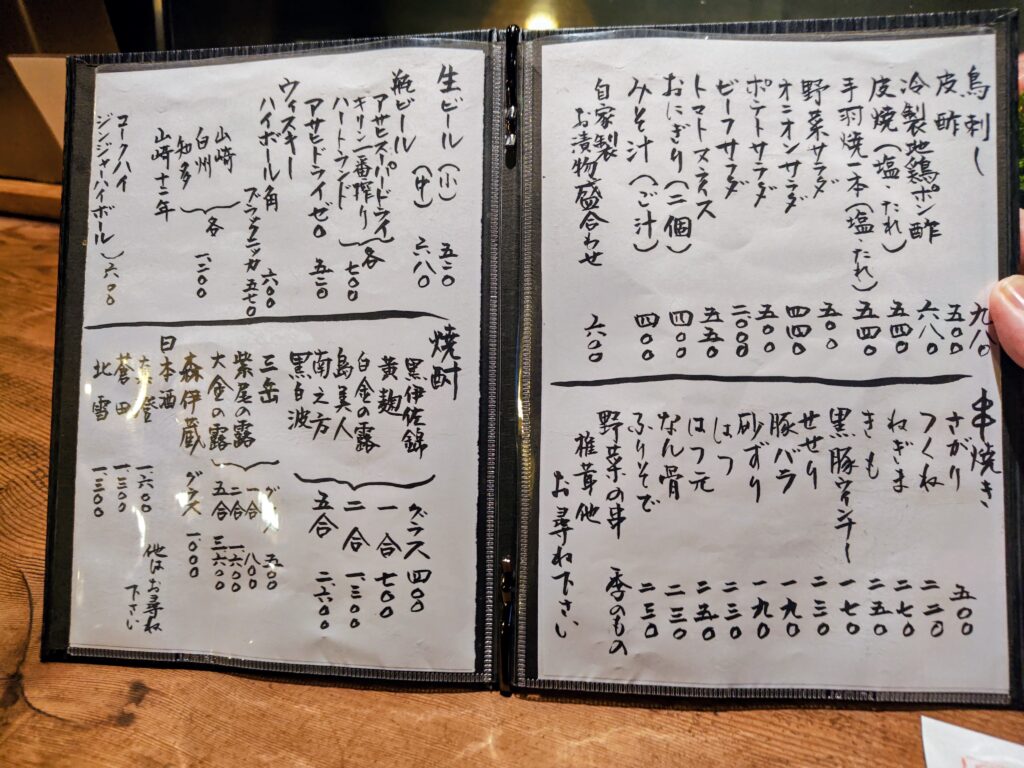 鳥刺し 九八〇
皮酢 五〇〇
冷製地鶏ポン酢 六八〇
皮焼(塩・たれ) 五四〇
手羽焼一本(塩・たれ) 五四〇
野菜サラダ 五〇〇
オニオンサラダ 四四〇
ポテトサラダ 五〇〇
ビーフサラダ 一〇〇〇
トマトスライス 五五〇
おにぎり(二個) 四〇〇
みそ汁(ご汁) 四〇〇
自家製
お漬物盛合わせ 六〇〇
串焼き
さがり 五〇〇
つくね 二二〇
ねぎま 二七〇
きも 二五〇
黒豚ウィンナー 一七〇
せせり 二三〇
豚バラ 一九〇
砂ずり 一九〇
はつ 二三〇
はつ元 二五〇
なん骨 二三〇
ふりそで 二三〇
野菜の串 季のもの
椎茸他
お尋ね下さい
生ビール(小) 五二〇
(中) 六八〇
瓶ビール
アサヒスーパードライ
キリン一番搾り 各
ハートランド 七〇〇
アサヒドライゼロ 五二〇
ウィスキー
ハイボール角 六〇〇
ブラックニッカ 五七〇
山崎
白州 各
知多 一二〇〇
山崎十二年
コークハイ
ジンジャーハイボール) 六〇〇
焼酎
黒伊佐錦 グラス 四〇〇
黄麹 一合 七〇〇
白金の露 二合 一三〇〇
島美人 五合 二六〇〇
南之方
黒白波
三岳 グラス 五〇〇
紫尾の露 一合 八〇〇
大金の露 二合 一六〇〇
五合 三六〇〇
森伊蔵 グラス 一〇〇〇
日本酒
一六〇〇
蒼田 一三〇〇
北雪 一三〇〇
他はお尋ね
下さい